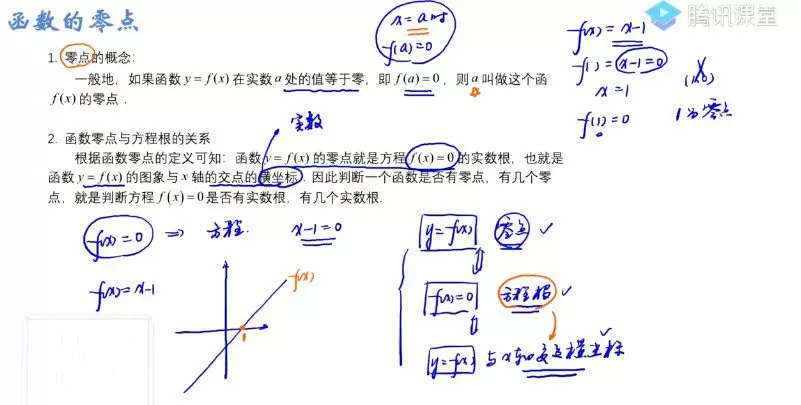 函数的零点
腾讯课堂
x = a 时
f(a)=0
f(x) = x-1
f(1) = x-1=0
x = 1
(1,0)
f(1) = 0
1为零点
1. 零点的概念：
一般地，如果函数 y = f(x) 在实数 a 处的值等于零，即 f(a)=0，则 a 叫做这个函
f(x) 的零点．
实数
2. 函数零点与方程根的关系
根据函数零点的定义可知：函数 y = f(x) 的零点就是方程 f(x)=0 的实数根，也就是
函数 y = f(x) 的图象与 x 轴的交点的横坐标．因此判断一个函数是否有零点，有几个零
点，就是判断方程 f(x)=0 是否有实数根，有几个实数根.
f(x)=0 ⇒ 方程. x-1=0
f(x)=x-1
f(x)
1
y=f(x) 零点 ✓
⇕
f(x)=0 方程根 ✓
⇕
y=f(x) 与x轴交点横坐标 ✓